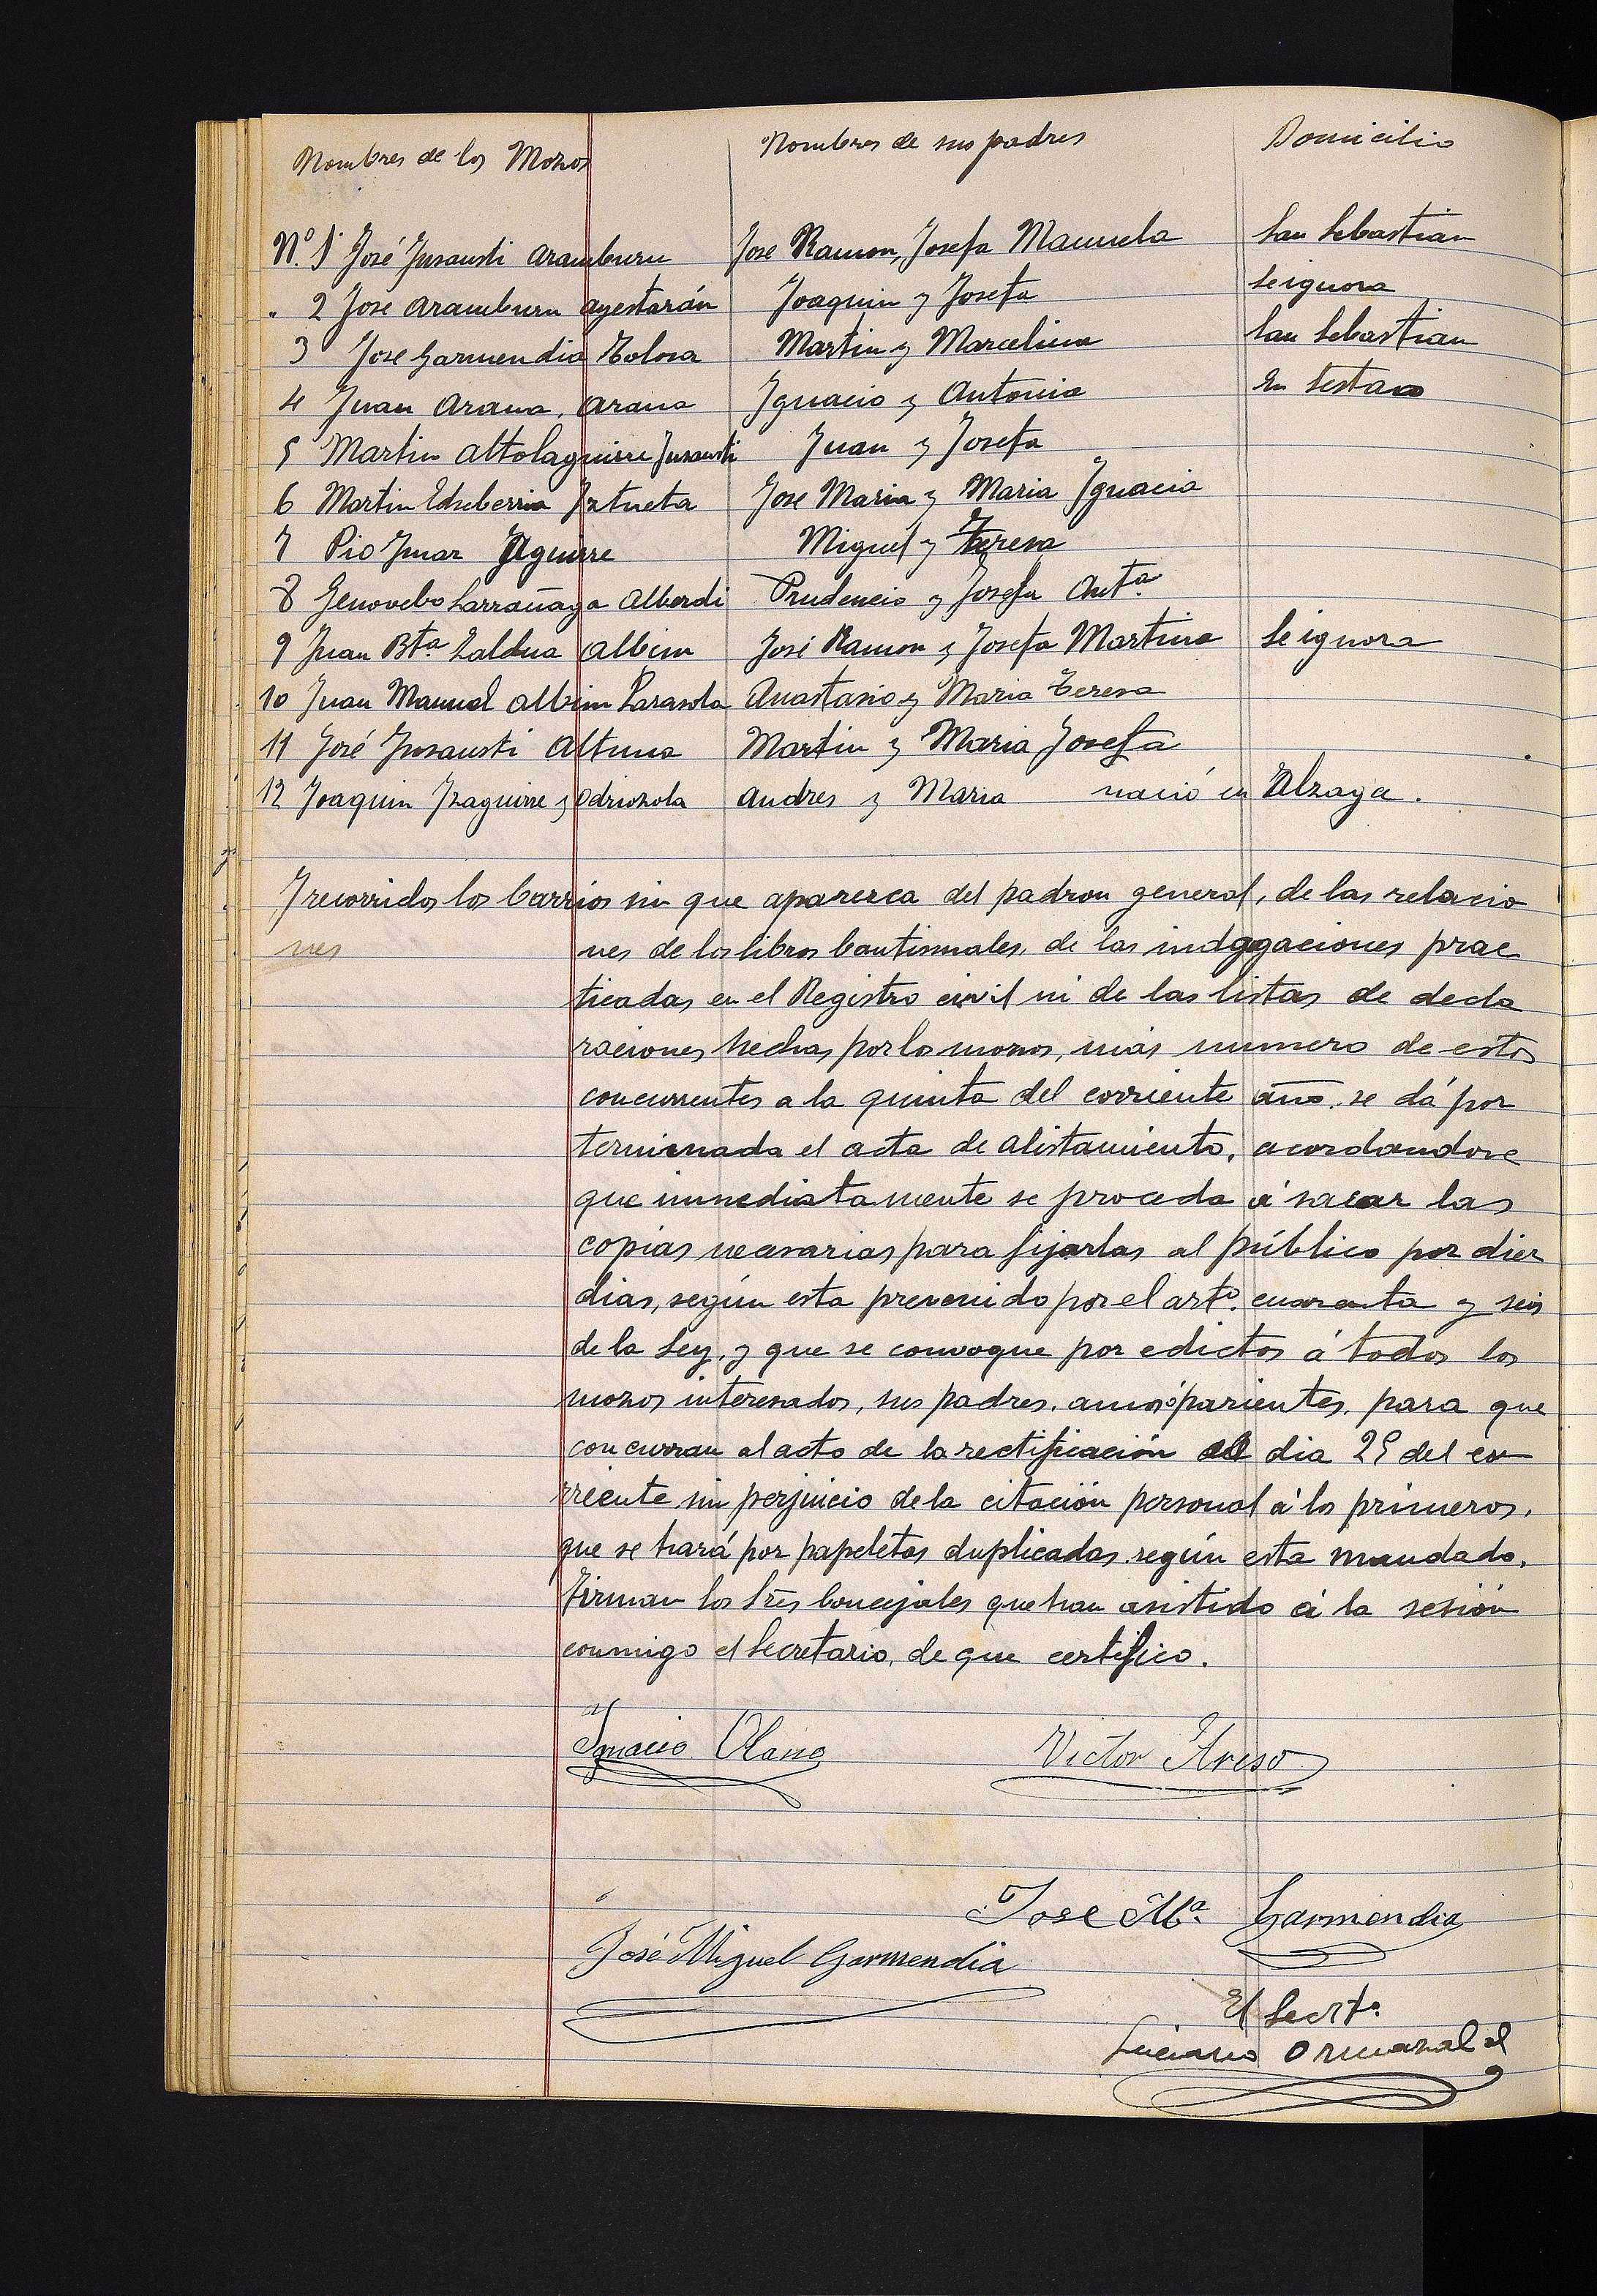 Nombres de los Mozos Nombres de sus padres Domicilio
Nº. 1 José Jusausti Aramburu Jose Ramon, Josefa Manuela San Sebastian
" 2 Jose Aramburu Ayestarán Joaquin y Josefa Se ignora
3 Jose Garmendia Tolosa Martin y Marcelina San Sebastian
4 Juan Arana, Arana Ignacio y Antonia En Sestao
5 Martin Altolaguirre Jusausti Juan y Josefa
6 Martin Echeberria Iztueta Jose Maria y Maria Ignacia
7 Pio Aguirre Miguel y Teresa
8 Genovebo Larrañaga Alberdi Prudencio y Josefa Antª
9 Juan Btª Zaldua Albisu José Ramon y Josefa Martina Se ignora
10 Juan Manuel Albisu Anastasio y Maria Teresa
11 José Jusausti Altuna Martin y Maria Josefa
12 Joaquin Izaguirre y Odriozola Andres y Maria nació en Alzaga.
I recorridos los barrios sin que aparezca del padron general, de las relacio
nes nes de los libros bautismales, de las indagaciones prac
ticadas en el Registro civil ni de las listas de decla
raciones hechas por lo mozos, más numero de estos
concurrentes a la quinta del corriente año, se dá por
terminada el acta de alistamiento, acordandose
que inmediatamente se proceda á sacar las
copias necesarias para fijarlas al público por diez
dias, según esta prevenido por el artº. cuarenta y seis
de la Ley, y que se convoque por edictos á todos los
mozos interesados, sus padres, amos ó parientes, para que
concurran al acto de la rectificación el dia 29 del co
rriente sin perjuicio de la citación personal á los primeros,
que se hará por papeletas duplicadas según esta mandado.
Firman los Sres Concejales que han asistido á la sesión
conmigo el Secretario, de que certifico.
Ignacio Olano Victor Areso
Jose Mª. Garmendia
José Miguel Garmendia
El Secrtº
Luciano Ormazabal